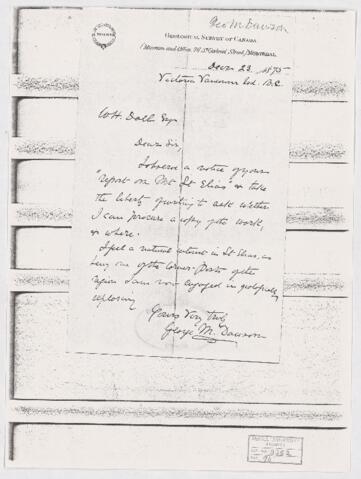 Geo M Dawson
GEOLOGICAL SURVEY OF CANADA
(Museum and Office, 76 St Gabriel Street,) MONTREAL.
Decr 23 1875
Victoria Vancouver Isd. B.C.
W H Dall Esq
Dear Sir,
I observe a notice of your
"report on Mt St Elias" & take
the liberty of writing to ask whether
I can procure a copy of the work,
& where.
I feel a natural interest in St Elias, as
being one of the corner-posts of the
region I am now engaged in geologically
exploring
Yours Very Truly
George M. Dawson